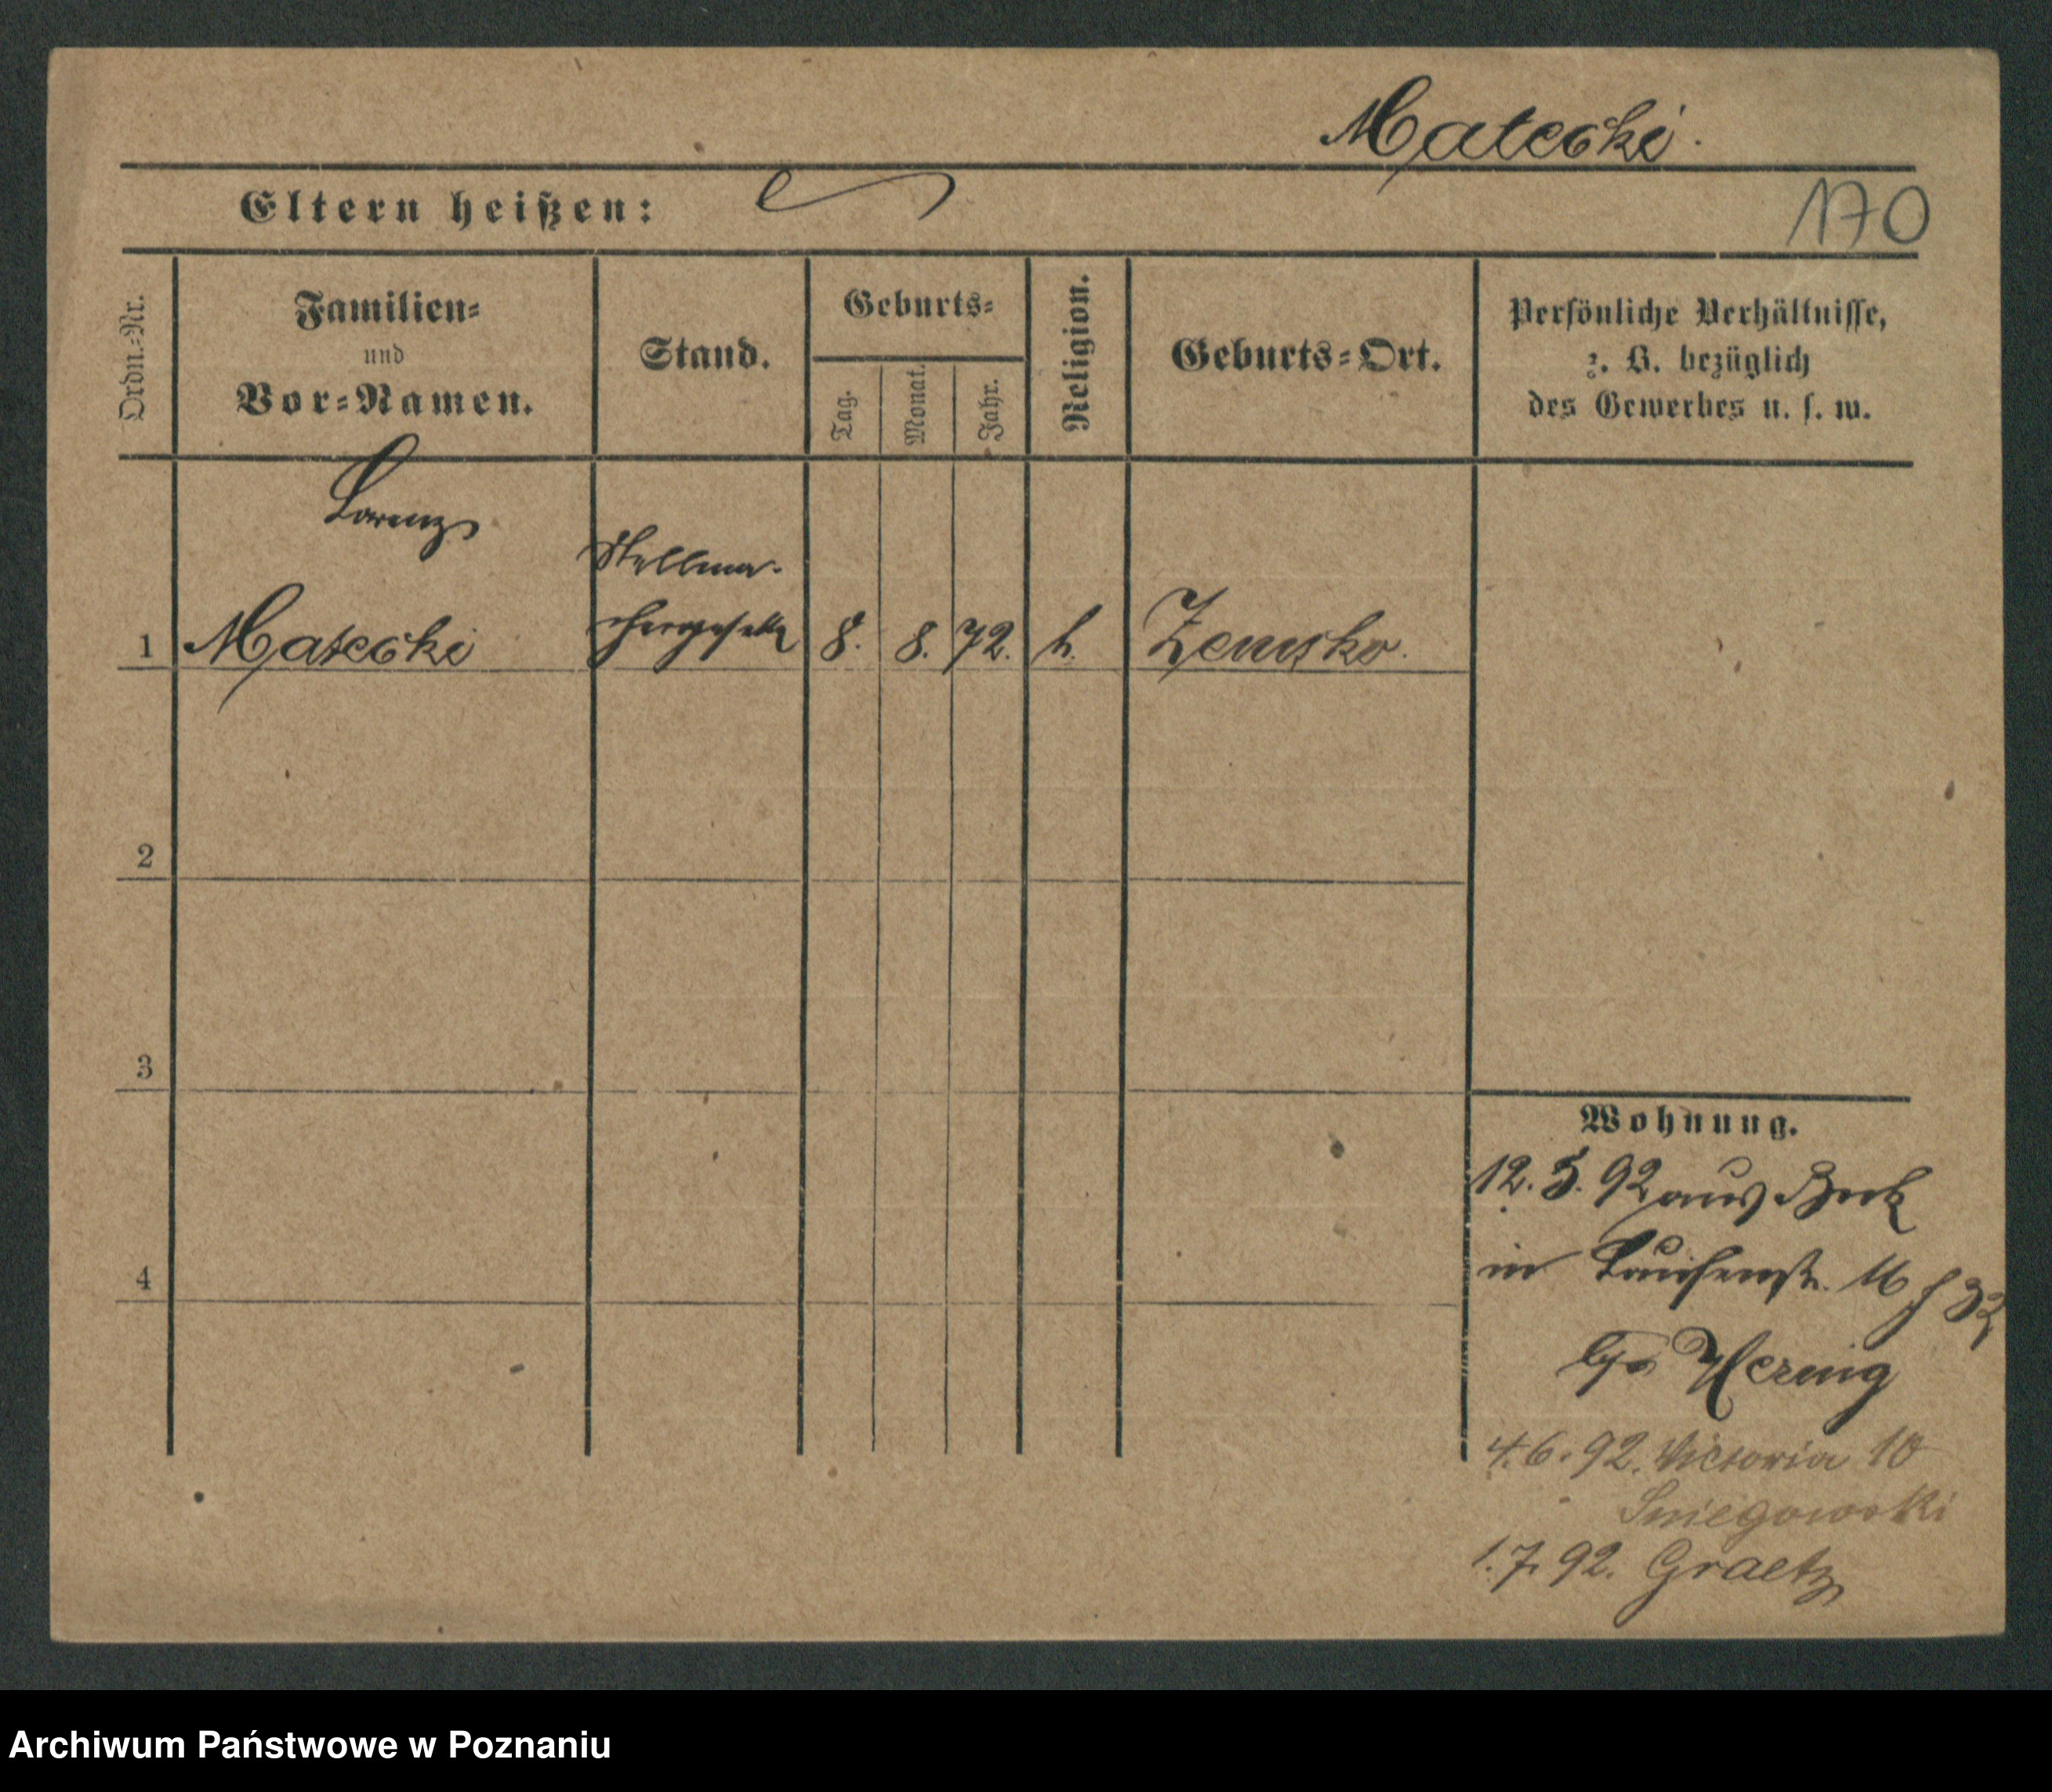 Matecki.
Eltern heißen:
170
Ordn.-Nr.
Familien-
und
Vor-Namen.
Stand.
Geburts-
Tag.
Monat.
Jahr.
Religion.
Geburts-Ort.
Persönliche Verhältnisse,
z. B. bezüglich
des Gewerbes u. s. w.
Lorenz
Stellma-
1 Matecki chergeselle 8. 8. 72. k. Zemsko.
2
3
4
Wohnung.
12. 5. 92 aus Buk
in 16
Hernig
4. 6. 92. Victoria 10
Sniegowski
1. 7. 92. Graetz
Archiwum Państwowe w Poznaniu